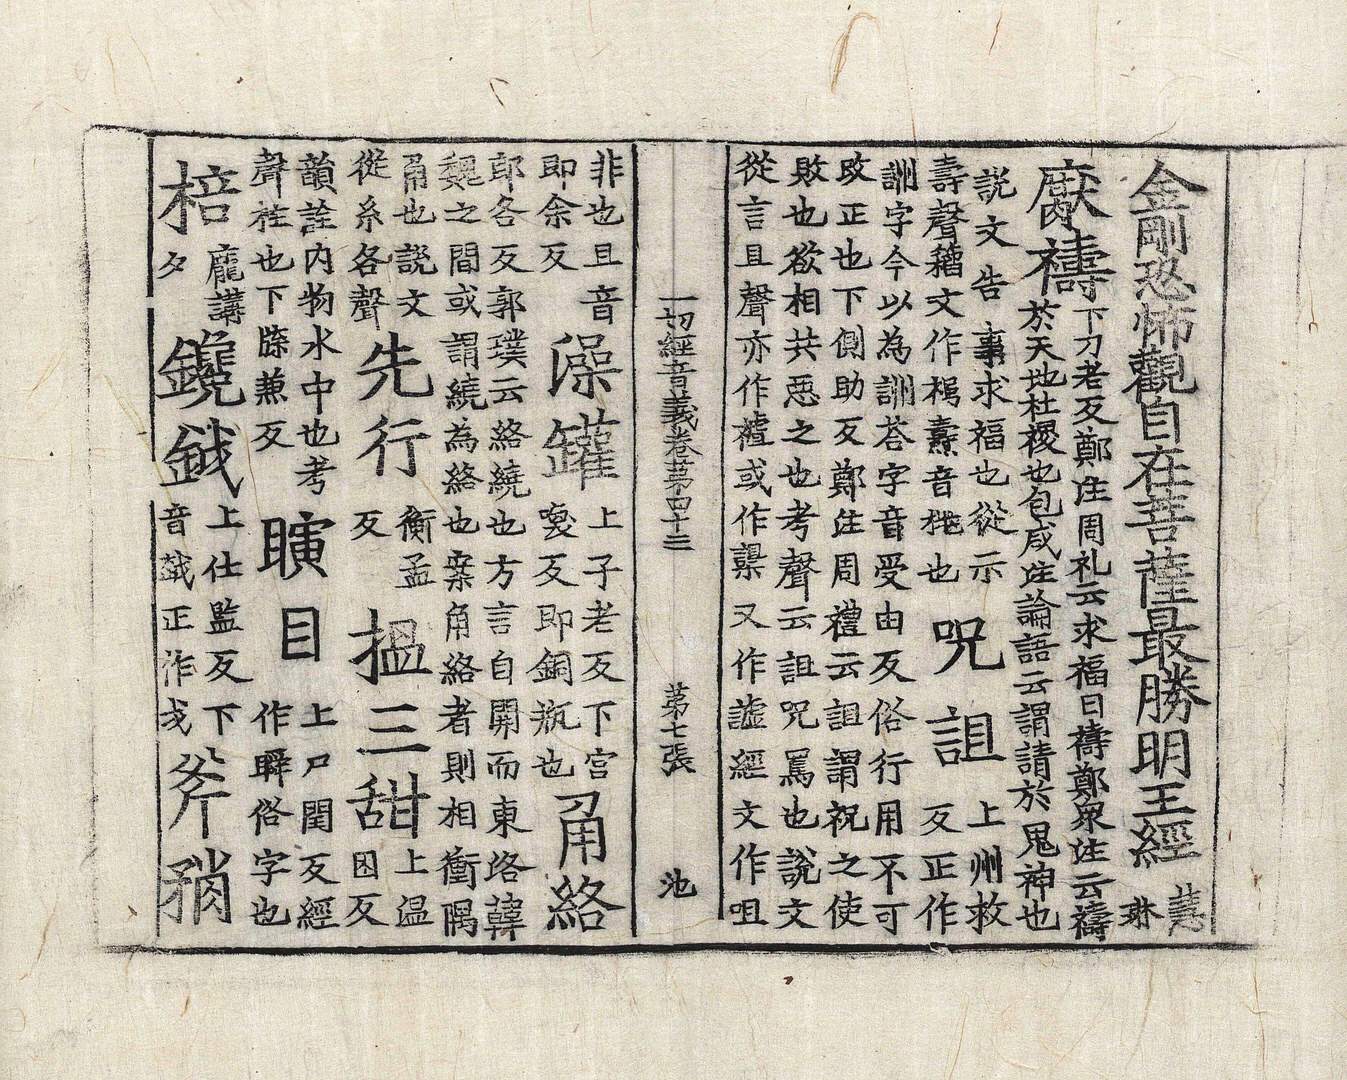 金剛恐怖觀自在菩薩最勝明王經 慧琳
厭禱 下刀老反鄭注周礼云求福曰禱鄭衆注云禱
於天地社稷也包咸注論語云謂請於鬼神也
說文告事求福也從示
壽聲籒文作 音 也 呪詛 上州救反正作
訓字今以為訓荅字音受由反俗行用不可
改正也下側助反鄭注周禮云詛謂祝之使
敗也欲相共惡之也考聲云詛呪罵也說文
從言且聲亦作 或作 又作謯經文作咀
一切經音義卷苐四十三 苐七張 池
非也且音
即余反 澡罐 上子老反下官喚反即銅瓶也 角絡
郎各反郭璞云絡繞也方言自關而東路韓
魏之間或謂繞為絡也案角絡者則相衝隅
角也說文
從糸各聲 先行 衡孟反 揾三甜 上温困反
韻詮內物水中也考
聲柱也下牒兼反 瞚目 上尸閏反經作瞬俗字也
棓 龐講 夕 鑱鉞 上仕監反下音越正作戉 斧矟